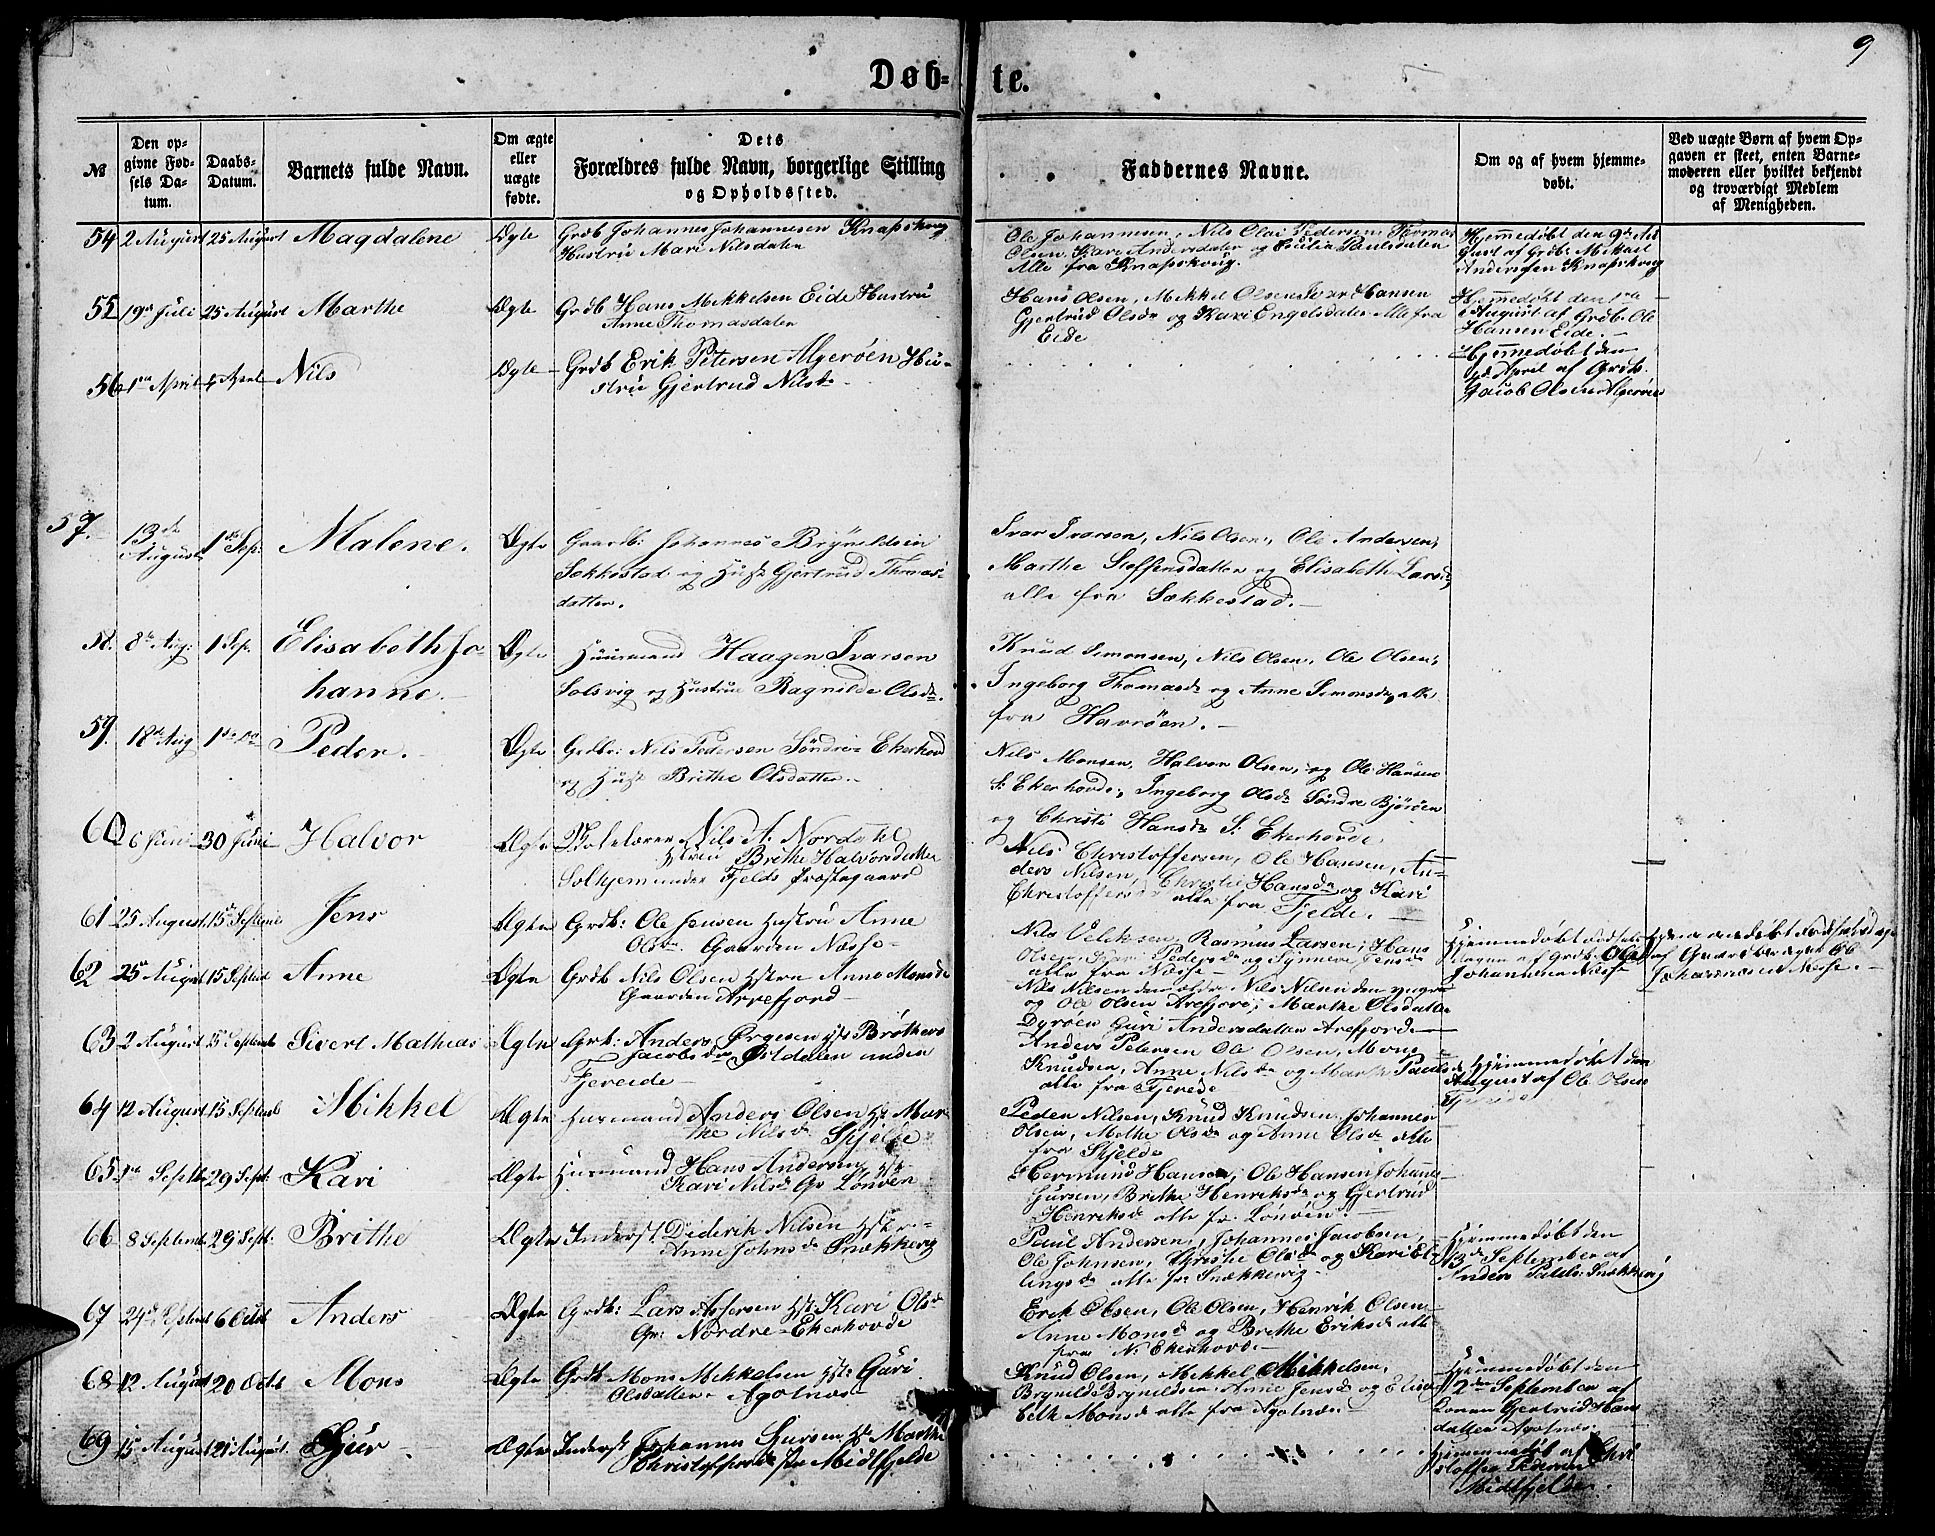 9
Døb- te.
№
Den op-
givne Fød-
sels Da-
tum.
Daabs-
Datum.
Barnets fulde Navn.
Om ægte
eller
uægte
fødte.
Dets
Forældres fulde Navn, borgerlige Stilling
og Opholdssted.
Faddernes Navne.
Om og af hvem hjemme-
døbt.
Ved uægte Børn af hvem Op-
gaven er skeet, enten Barne-
moderen eller hvilket bekjendt
og troværdigt Medlem
af Menigheden.
54 2 August 25 August Magdalene Ægte Grdb Johannes Johannesen Knapskoug
Hustru Mari Nilsdater
Ole Johannesen, Nils Olai Pedersen, Thomas
Olsen, Kari Andersdater og Cecilia Paulsdatter
Alle fra Knapskoug.
Hjemmedøbt den 9de Au-
gust af Grdb. Mikkel
Andersen Knapskoug
55 19de Juli 25 August Marthe Ægte Grdb Hans Mikkelsen Eide Hustru
Anne Thomasdater
Hans Olsen, Mikkel Olsen Ivar Hansen
Gjertrud Olsdr og Kari Engelsdater Alle fra
Eide
Hjemmedøbt den 1ste
August af Grdb. Ole
Hansen Eide.
56 1ste April April Nils Ægte Grdb Erik Petersen Algerøen Hu-
stru Gjertrud Nilsdr
Hjemmedøbt den
April af Grdb.
Jacob Olsen Algerøen
57. 13de August 1ste Sep: Malene. Ægte Gaardb: Johannes Brynildsen
Sækkestad og Hust: Gjertrud Thomas-
datter.
Ivar Ivarsen, Nils Olsen, Ole Andersen,
Marthe Steffensdatter og Elisabeth Larsdr
alle fra Sækkestad.
58. 8de Aug: 1 Sep. Elisabeth Jo-
hanne. Ægte Huusmand Haagen Ivarsen
Solsvig og Hustrue Ragnilde Olsdr.
Knud Simonsen, Nils Olsen, Ole Olsen,
Ingeborg Thomasdr og Anne Simonsdr, alle
fra Havrøen.
59. 18de Aug 1ste Peder. Ægte Grdbr: Nils Pedersen Søndre Ekerhovd
og Hust Brithe Olsdatter.
Nils Monsen, Halvor Olsen, og Ole Hansen
S: Ekerhovde, Ingeborg Olsdr Søndre Bjorøen
og Christi Hansdr S: Ekerhovde
60 6 Juni 30 Juni Halvor Ægte Skolelærer Nils A. Nordahl
Hstru Brithe Halvorsdatter
Solhjem under Fjelds Præstegaard
Nils Christoffersen, Ole Hansen, An-
ders Nilsen, Christie Hansdr og Kari
Christoffersdr alle fra Fjelde.
61 25 August 15de September Jens Ægte Grdb: Ole Jensen Hustru Anne
Olsdr Gaarden Næsse
Nils Velksen, Rasmus Larsen, Hans
Olsen, Kari Pedersdr og Synneve Jensdr
alle fra Næsse
Hjemmedøbt Fødsels-
dagen af Grdb. Ole
Johannesen Næsse
Hjemmedøbt Fødselsdage
af Gaardbruger Ole
Johannesen Næsse.
62 25 August 15 Septbr Anne Ægte Grdb Nils Olsen Hstru Anne Monsdr
Gaarden Arrefjord
Nils Nilsen den ældre Nils Nilsen den yngre
og Ole Olsen Arefjord, Marthe Olsdatter
Dyrøen Guri Andersdatter Arefjorde
63 2 August 15 Septemb Sivert Mathias Ægte Grb: Anders Ørgesen Hst Brithe
Jacobsdr Ørtdalen under
Fjereide
Anders Petersen Ole Olsen, Mons
Knudsen, Anne Nilsdr og Marthe Paulsdr
alle fra Fjerede
Hjemmedøbt den
August af Ole Olsen
Fjereide
64 12 August 15 Septemb Mikkel Ægte Husmand Anders Olsen Hst Mar-
the Nilsdr Skjelde
Peder Nilsen, Knud Knudsen, Johannes
Olsen, Methe Olsdr og Anne Olsdr alle
fra Skjelde
65 1ste Septbr 29 Sept: Kari Ægte Husmand Hans Andersen Hst
Kari Nilsdr Gr Lonøen
Hermund Hansen, Ole Hansen, Johannes
Gursen, Brithe Henriksdr og Gjertrud
Henriksdr alle fr: Lonøen
66 8 Septemb 29 Sept: Brithe Ægte Inderst Diderik Nilsen Hstr
Anne Johnsdr Snekkevig
Paul Andersen, Johannes Jacobsen,
Ole Johnsen, Christie Olsdr og Kari El-
lingsdr alle fr Snækkevig
Hjemmedøbt den
13de September af
Anders Snekkevig
67 24de Septemb 6 Octob Anders Ægte Grdb: Lars Assersen Hst: Kari Olsdr
Gr: Nordre Ekerhovde
Erik Olsen, Ole Olsen, Henrik Olsen
Anne Monsdr og Brethe Eriksdr alle
fra N: Ekerhovde
68 12 August 20 Octob Mons Ægte Grdb Mons Mikkelsen Hst: Guri
Olsdatter Agotnæs
Knud Olsen, Mikkel Mikkelsen,
Brynild Brynildsen Anne Jensdr og Elisa-
beth Monsdr alle fra Agotnæs
Hjemmedøbt den
2den September af
Konen Gjertrud Hans
datter Agotnæs
69 15 August 21 August. Sjur Ægte Inderst Johannes Sjursen Hst Marthe
Christoffersdr fra Midtfjelde
Hjemmedøbt af Chri
stoffer Pedersen
Midtfjelde.